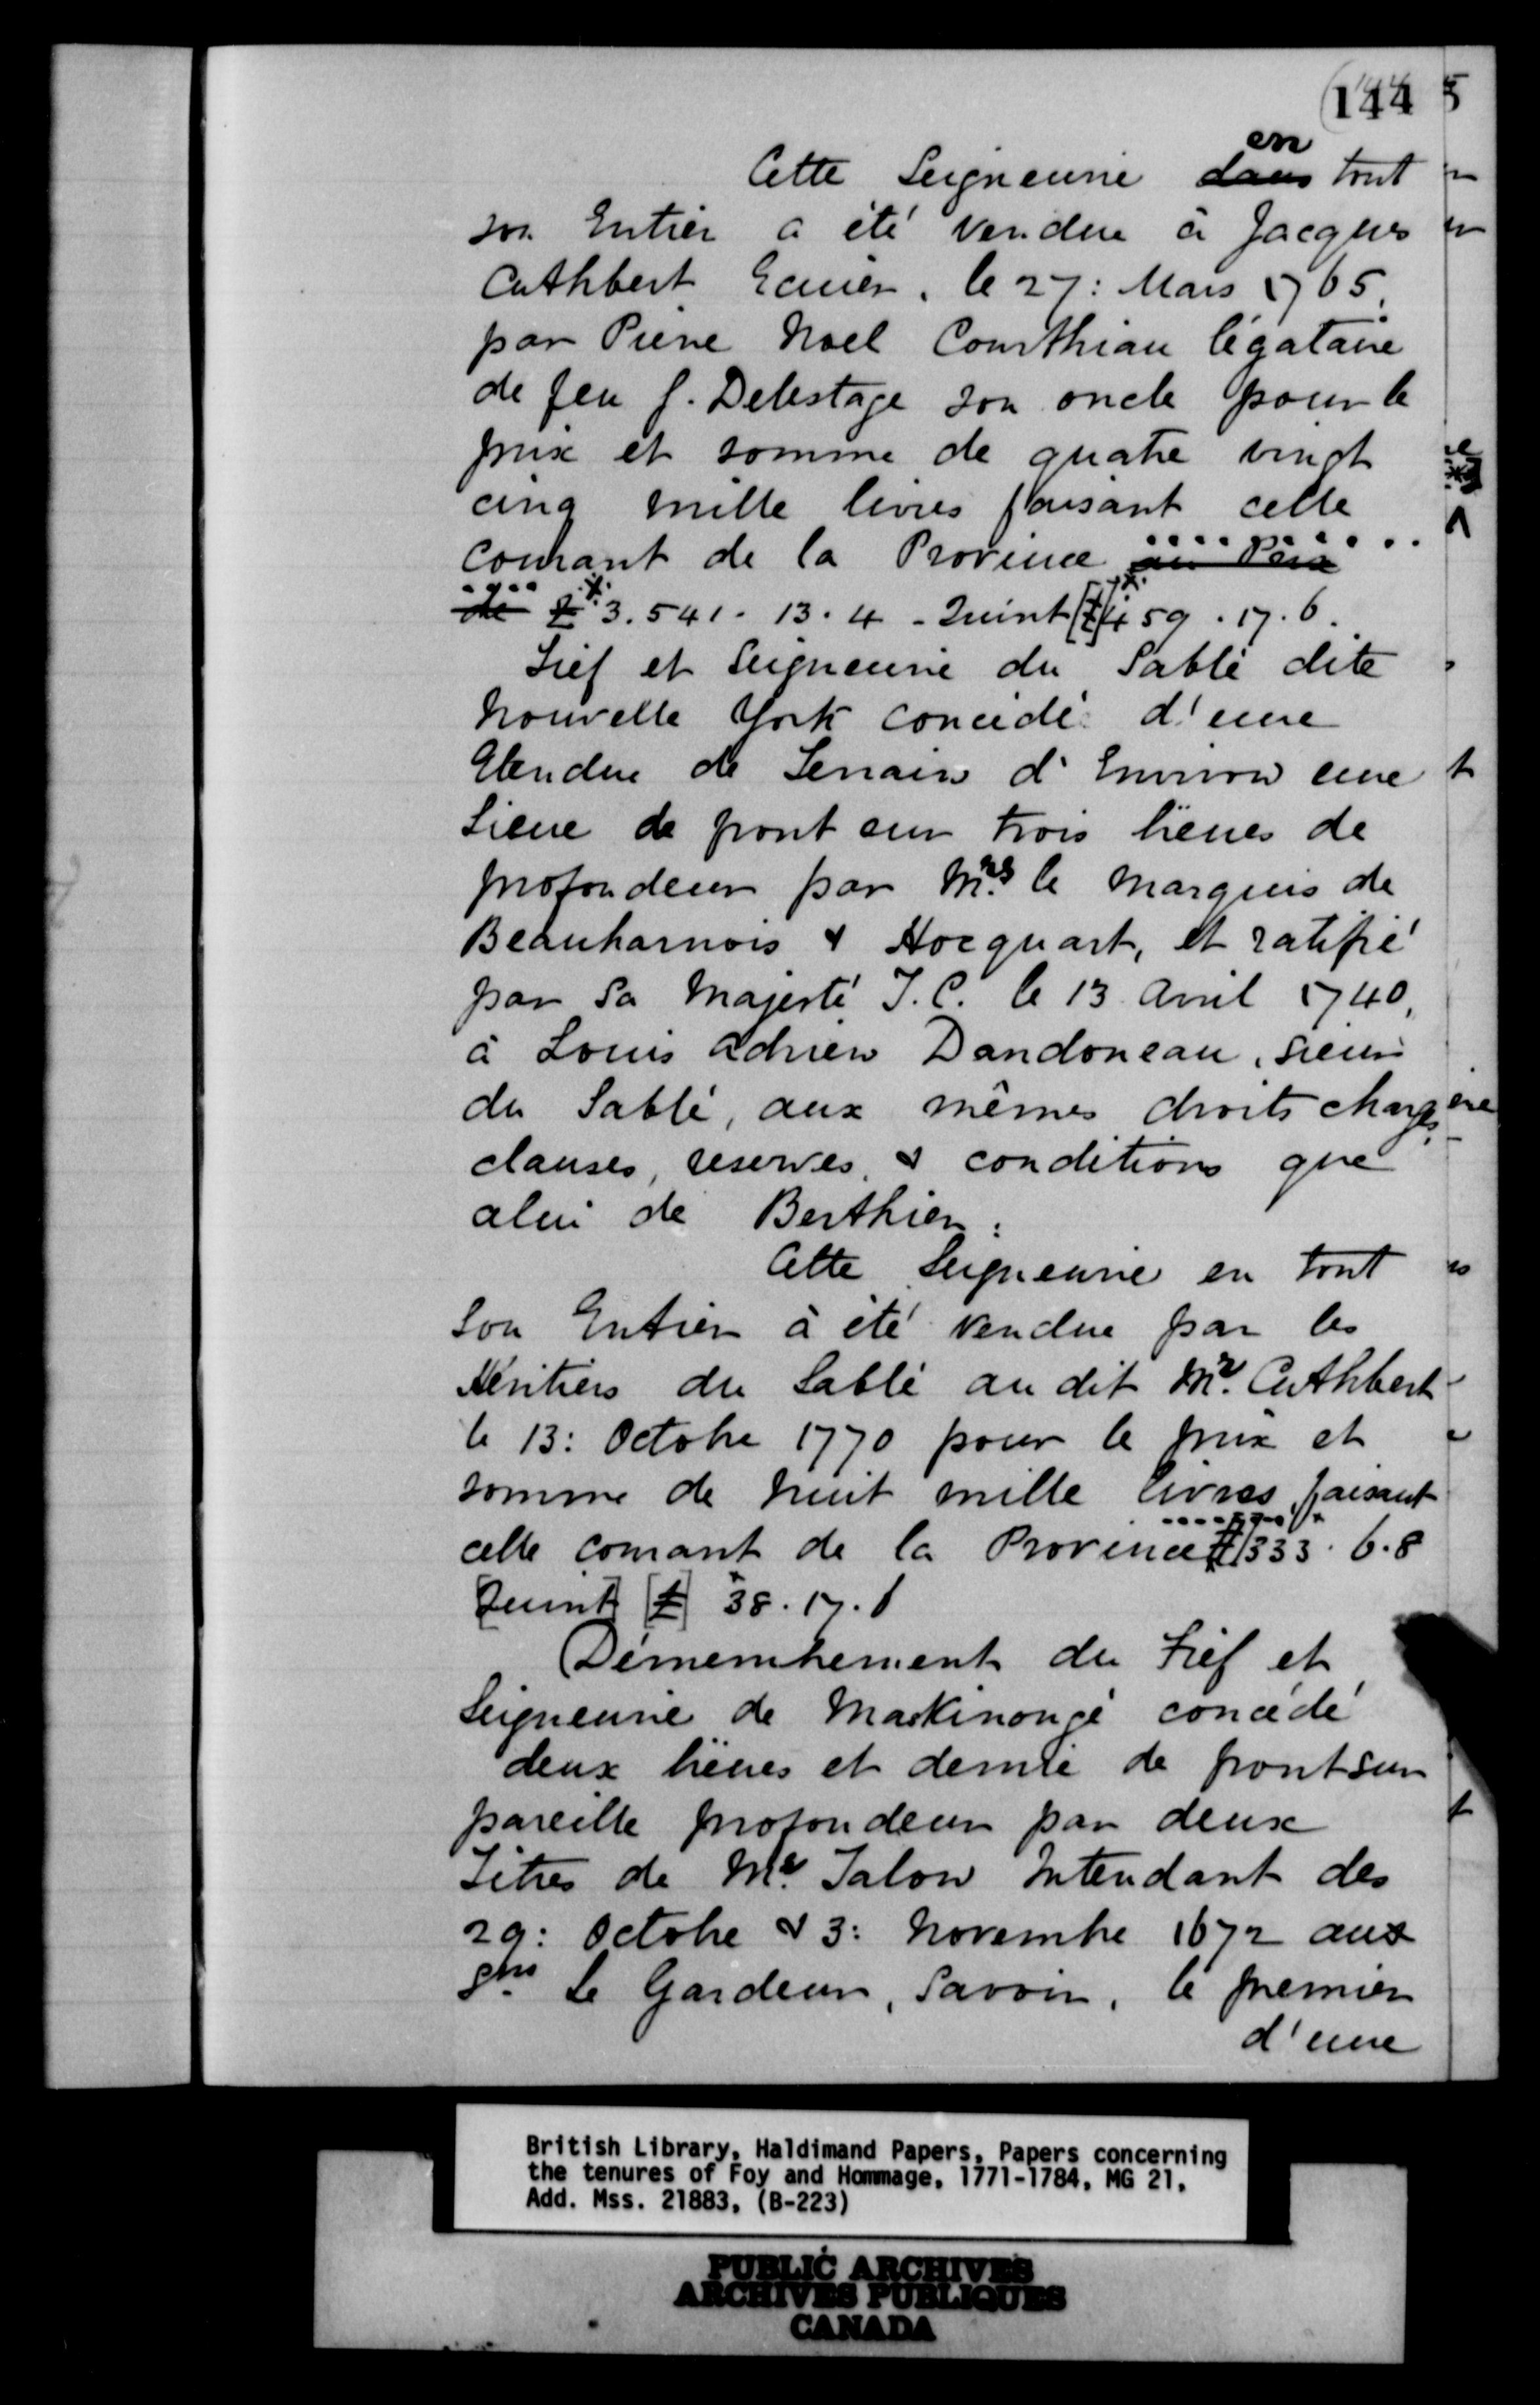 144
Cette Seigneurie ~~dans~~ en tout
son Entier a été vendue à Jacques
Cuthbert Ecuier, le 27: Mars 1765,
par Pierre Noel Courthiau légataire
de feu P. Delestage son oncle pour le
prix et somme de quatre vingt
cinq mille livres faisant celle
courant de la Province ~~au Prix~~
~~de~~ £ 3.541. 13. 4 - Quint [£] 459. 17. 6.
Fief et Seigneurie du Sablé dite
Nouvelle York concédé d'une
Etendue de Terrain d'Environ une
Lieue de front sur trois lieues de
profondeur par Mrs. le Marquis de
Beauharnois & Hocquart, et ratifié
par Sa Majesté T. C. le 13 Avril 1740,
à Louis Adrien Dandoneau, sieur
du Sablé, aux mêmes droits charges,
clauses, reserves, & conditions que
celui de Berthier.
Cette Seigneurie en tout
son Entier à été vendue par les
Héritiers du Sablé au dit Mr. Cuthbert
le 13: Octobre 1770 pour le prix et
somme de huit mille livres faisant
celle courant de la Province £ 333. 6. 8
[Quint] [£] 38. 17.
Démembrement du Fief et
Seigneurie de Maskinongé concédé
deux lieues et demie de front sur
pareille profondeur par deux
Titres de Mr. Talon Intendant des
29: Octobre & 3: Novembre 1672 aux
Srs. Le Gardeur, Savoir, le premier
d'une
British Library, Haldimand Papers, Papers concerning
the tenures of Foy and Hommage, 1771-1784, MG 21,
Add. Mss. 21883, (B-223)
PUBLIC ARCHIVES
ARCHIVES PUBLIQUES
CANADA